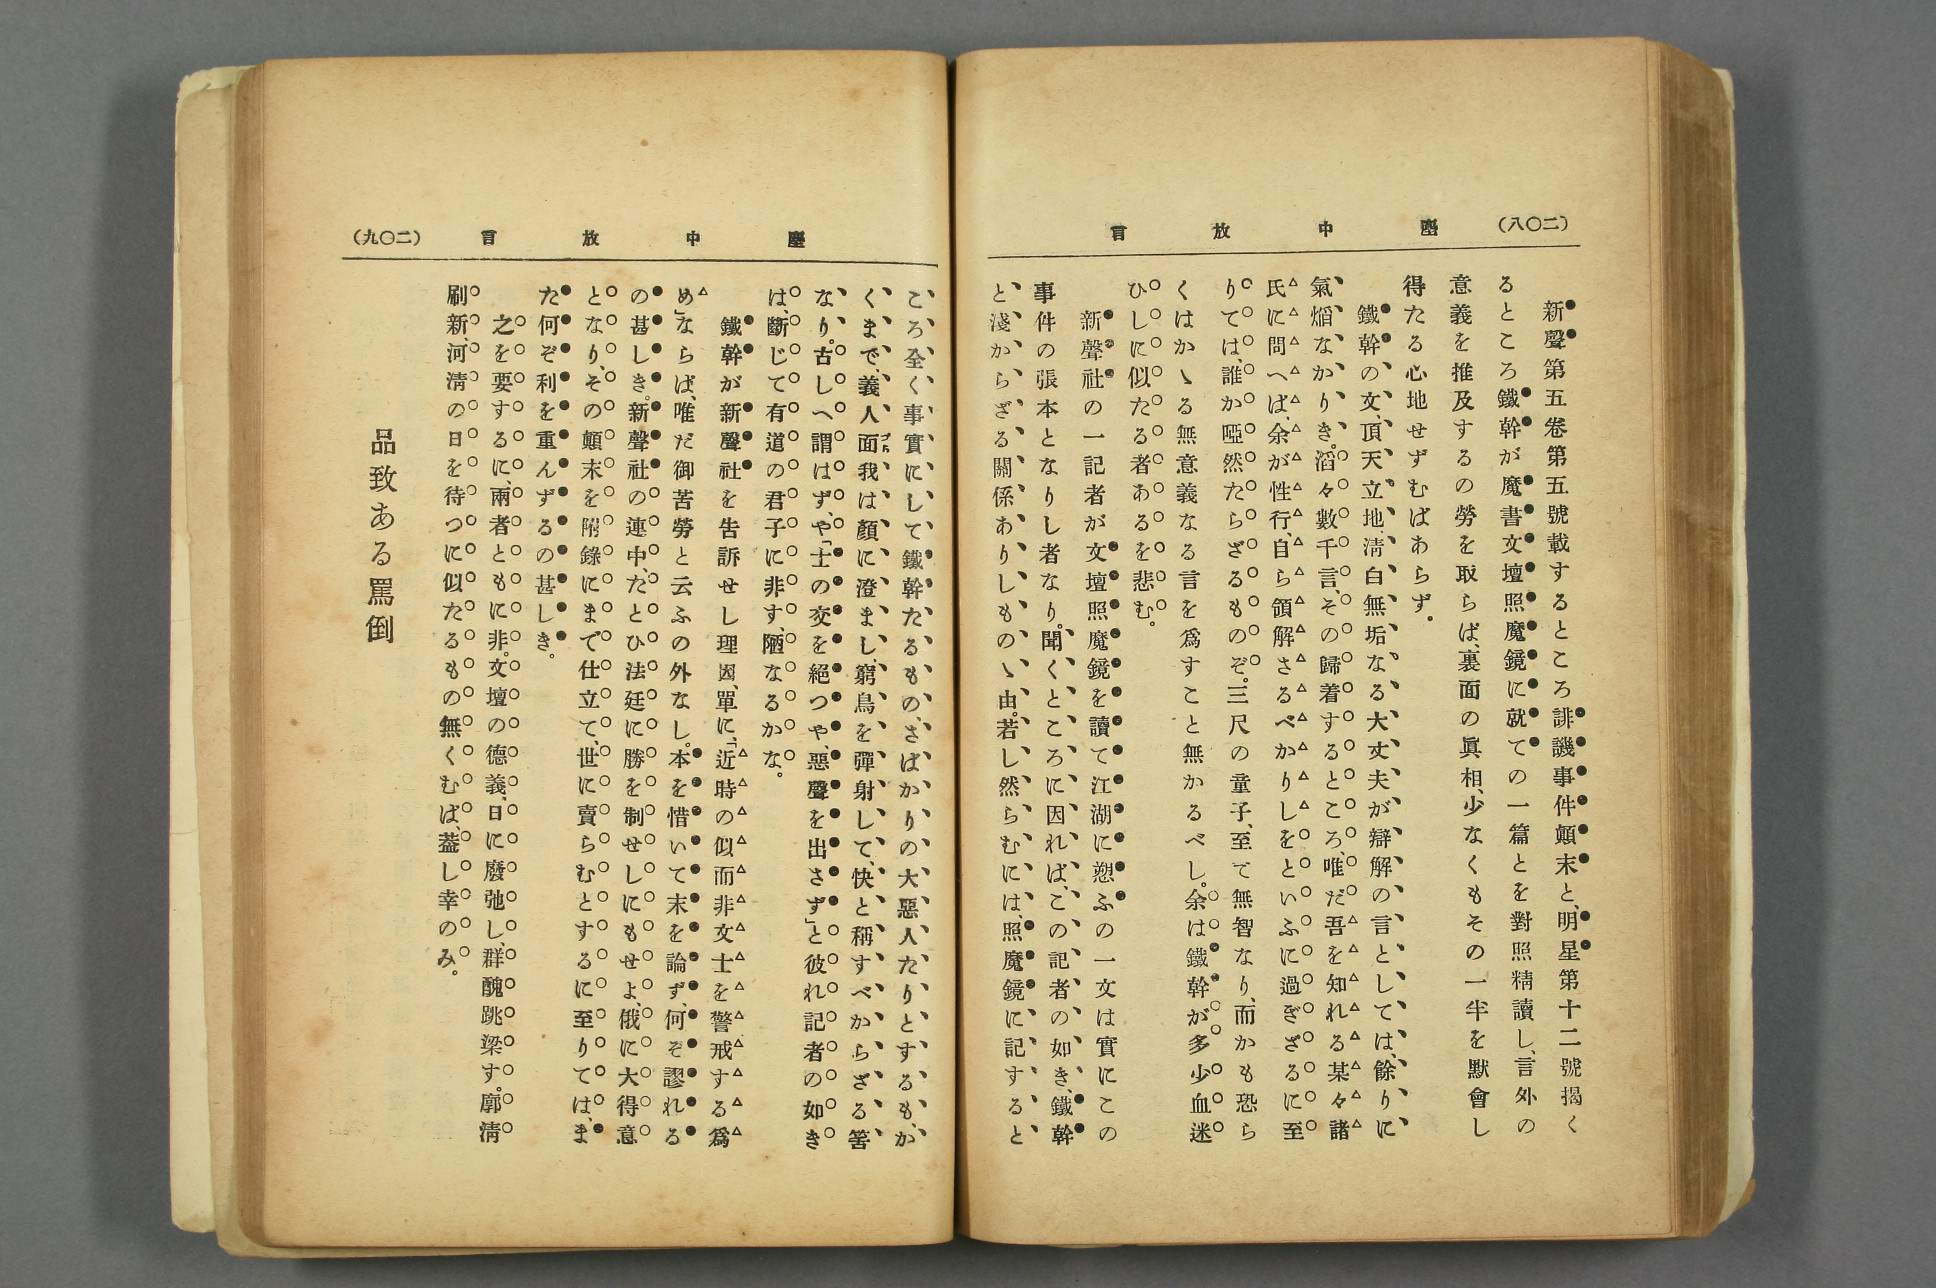 (二〇八)
塵中放言
新聲第五卷第五號載するところ誹譏事件顛末と、明星第十二號揭く
るところ鐵幹が魔書文壇照魔鏡に就ての一篇とを對照精讀し、言外の
意義を推及するの勞を取らば、裏面の眞相、少なくもその一半を默會し
得たる心地せずむばあらず。
鐵幹の文、頂天立地淸白無垢なる大丈夫が辯解の言としては、餘りに
氣焔なかりき。滔々數千言、その歸着するところ、唯だ吾を知れる某々諸
氏に問へば、余が性行、自ら領解さるべかりしをといふに過ぎざるに至
りては、誰か啞然たらざるものぞ。三尺の童子、至て無智なり、而かも恐ら
くはかゝる無意義なる言を爲すこと無かるべし。余は鐵幹が多少血迷
ひしに似たる者あるを悲む。
新聲社の一記者が文壇照魔鏡を讀て江湖に愬ふの一文は實にこの
事件の張本となりし者なり。聞くところに因れば、この記者の如き、鐵幹
と淺からざる關係ありしものゝ由。若し然らむには、照魔鏡に記すると
塵中放言
(二〇九)
ころ全く事實にして鐵幹たるもの、さばかりの大惡人たりとするも、か
くまで、義人面我は顏に澄まし、窮鳥を彈射して、快と稱すべからざる筈
なり。古しへ謂はずや、「士の交を絕つや、惡聲を出さず」と彼れ記者の如き
は、斷じて有道の君子に非す、陋なるかな。
鐵幹が新聲社を告訴せし理因、單に、「近時の似而非文士を警戒する爲
め」ならば、唯だ御苦勞と云ふの外なし。本を惜いて末を論ず、何ぞ謬れる
の甚しき。新聲社の連中、たとひ法廷に勝を制せしにもせよ、俄に大得意
となり、その顛末を附錄にまで仕立て、世に賣らむとするに至りては、ま
た何ぞ利を重んずるの甚しき。
之を要するに、兩者ともに非。文壇の德義、日に廢弛し、群醜跳梁す。廓淸
刷新、河淸の日を待つに似たるもの無くむば、蓋し幸のみ。
品致ある罵倒